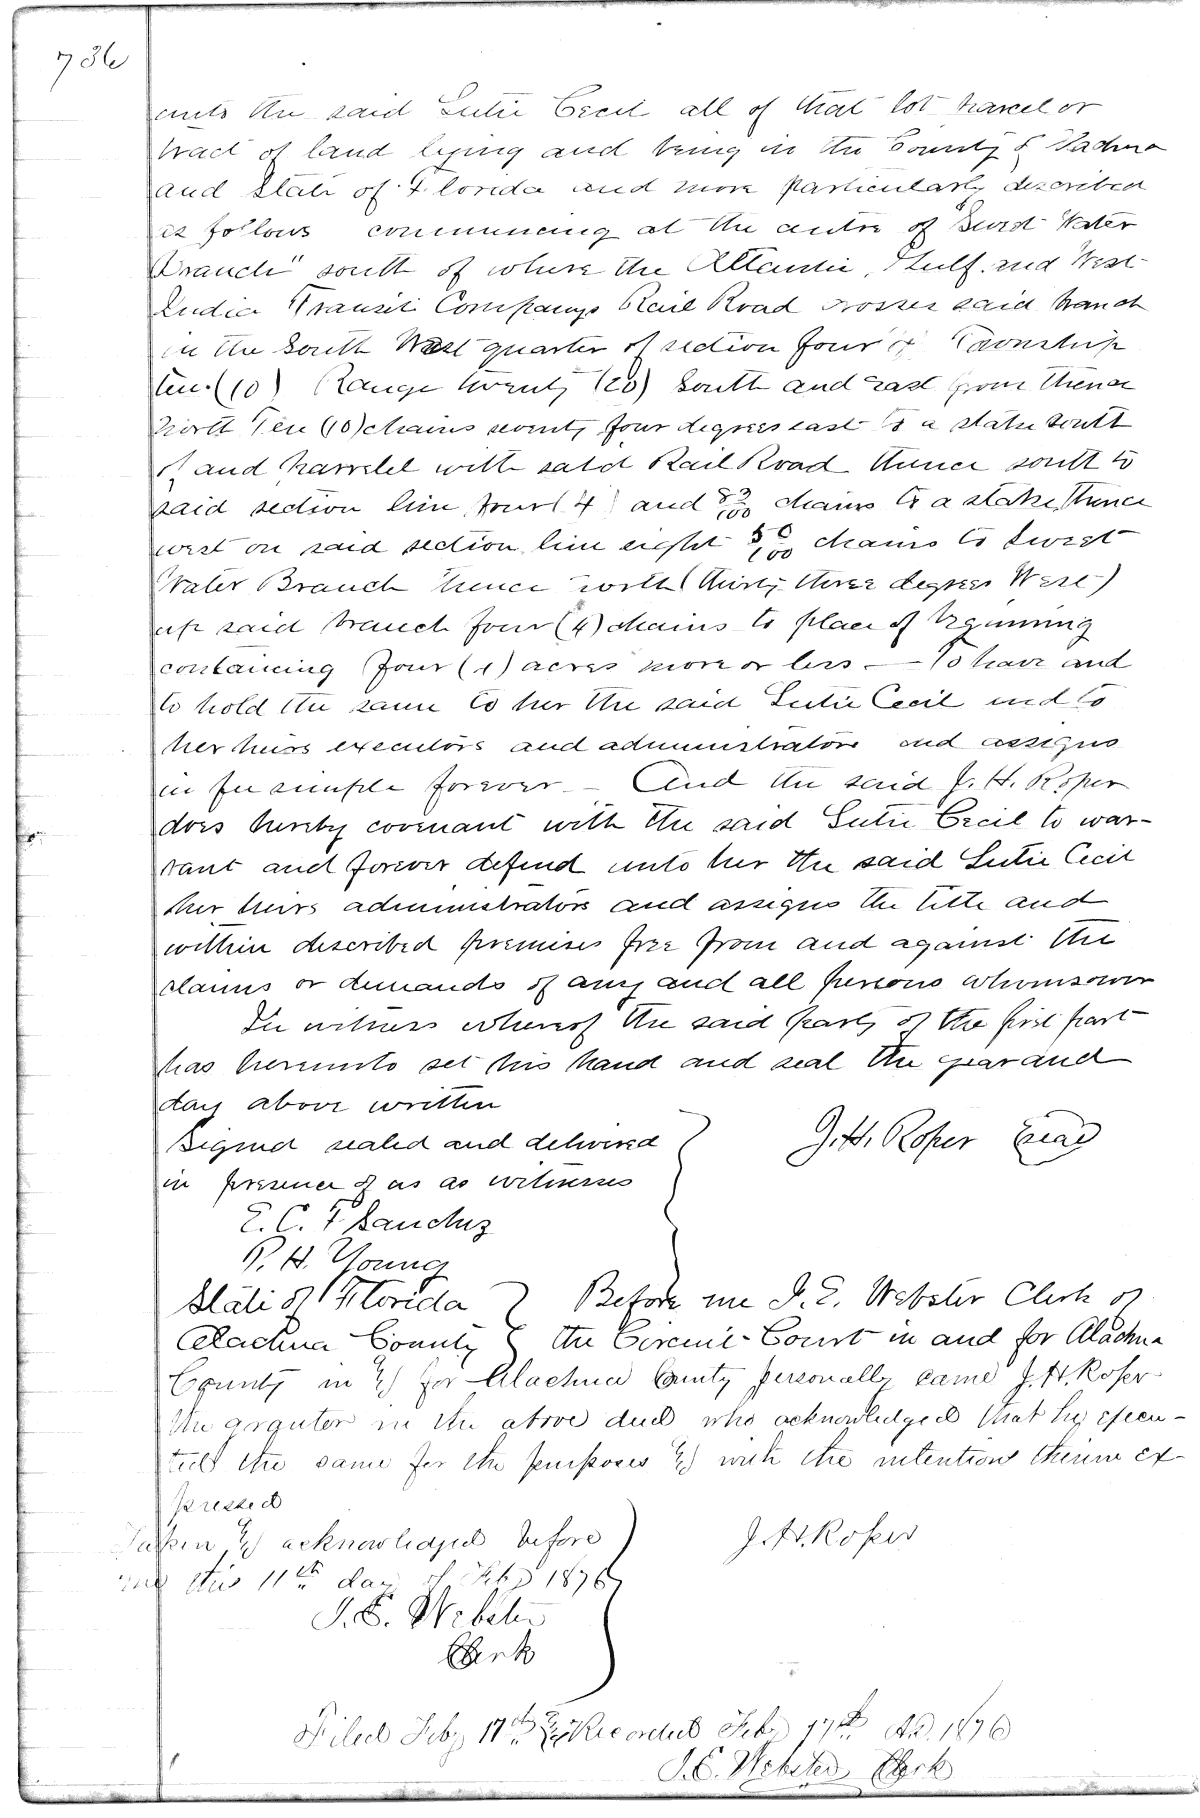 736
unto the said Lutie Cecil all of that lot parcel or
tract of land lying and being in the County of Alachua
and State of Florida and more particularly described
as follows commencing at the centre of Sweet Water
Branch" south of where the Atlantic, Gulf and West
India Transit Companys Rail Road crosses said branch
in the South West quarter of section four 4 Township
ten (10) Range twenty (20) South and east from thence
North Ten (10) chains seventy four degrees east to a stake south
of and parrelel with said Rail Road thence south to
said section line four (4) and 83/100 chains to a stake, thence
west on said section line eight 50/100 chains to Sweet
Water Branch thence north (thirty three degrees West)
up said branch four (4) chains to place of beginning
containing four (4) acres more or less — To have and
to hold the same to her the said Lutie Cecil and to
her heirs executors and administrators and assigns
in fee simple forever — And the said J. H. Roper
does hereby covenant with the said Lutie Cecil to war-
rant and forever defend unto her the said Lutie Cecil
her heirs administrators and assigns the title and
within described premises free from and against the
claims or demands of any and all persons whomsoever
In witness whereof the said party of the first part
has hereunto set his hand and seal the year and
day above written
Signed sealed and delivered
in presence of us as witnesses
J. H. Roper Seal
E. C. F. Sanchez
P. H. Young
State of Florida } Before me J. E. Webster Clerk of
Alachua County } the Circuit Court in and for Alachua
County in & for Alachua County personally came J. H. Roper
the grantor in the above deed who acknowledged that he execu-
ted the same for the purposes & with the intention therein ex-
pressed
Taken & acknowledged before
me this 11th day of Feby 1876
J. H. Roper
J. E. Webster
Clerk
Filed Feby 17th & Recorded Feby 17th AD. 1876
J. E. Webster Clerk